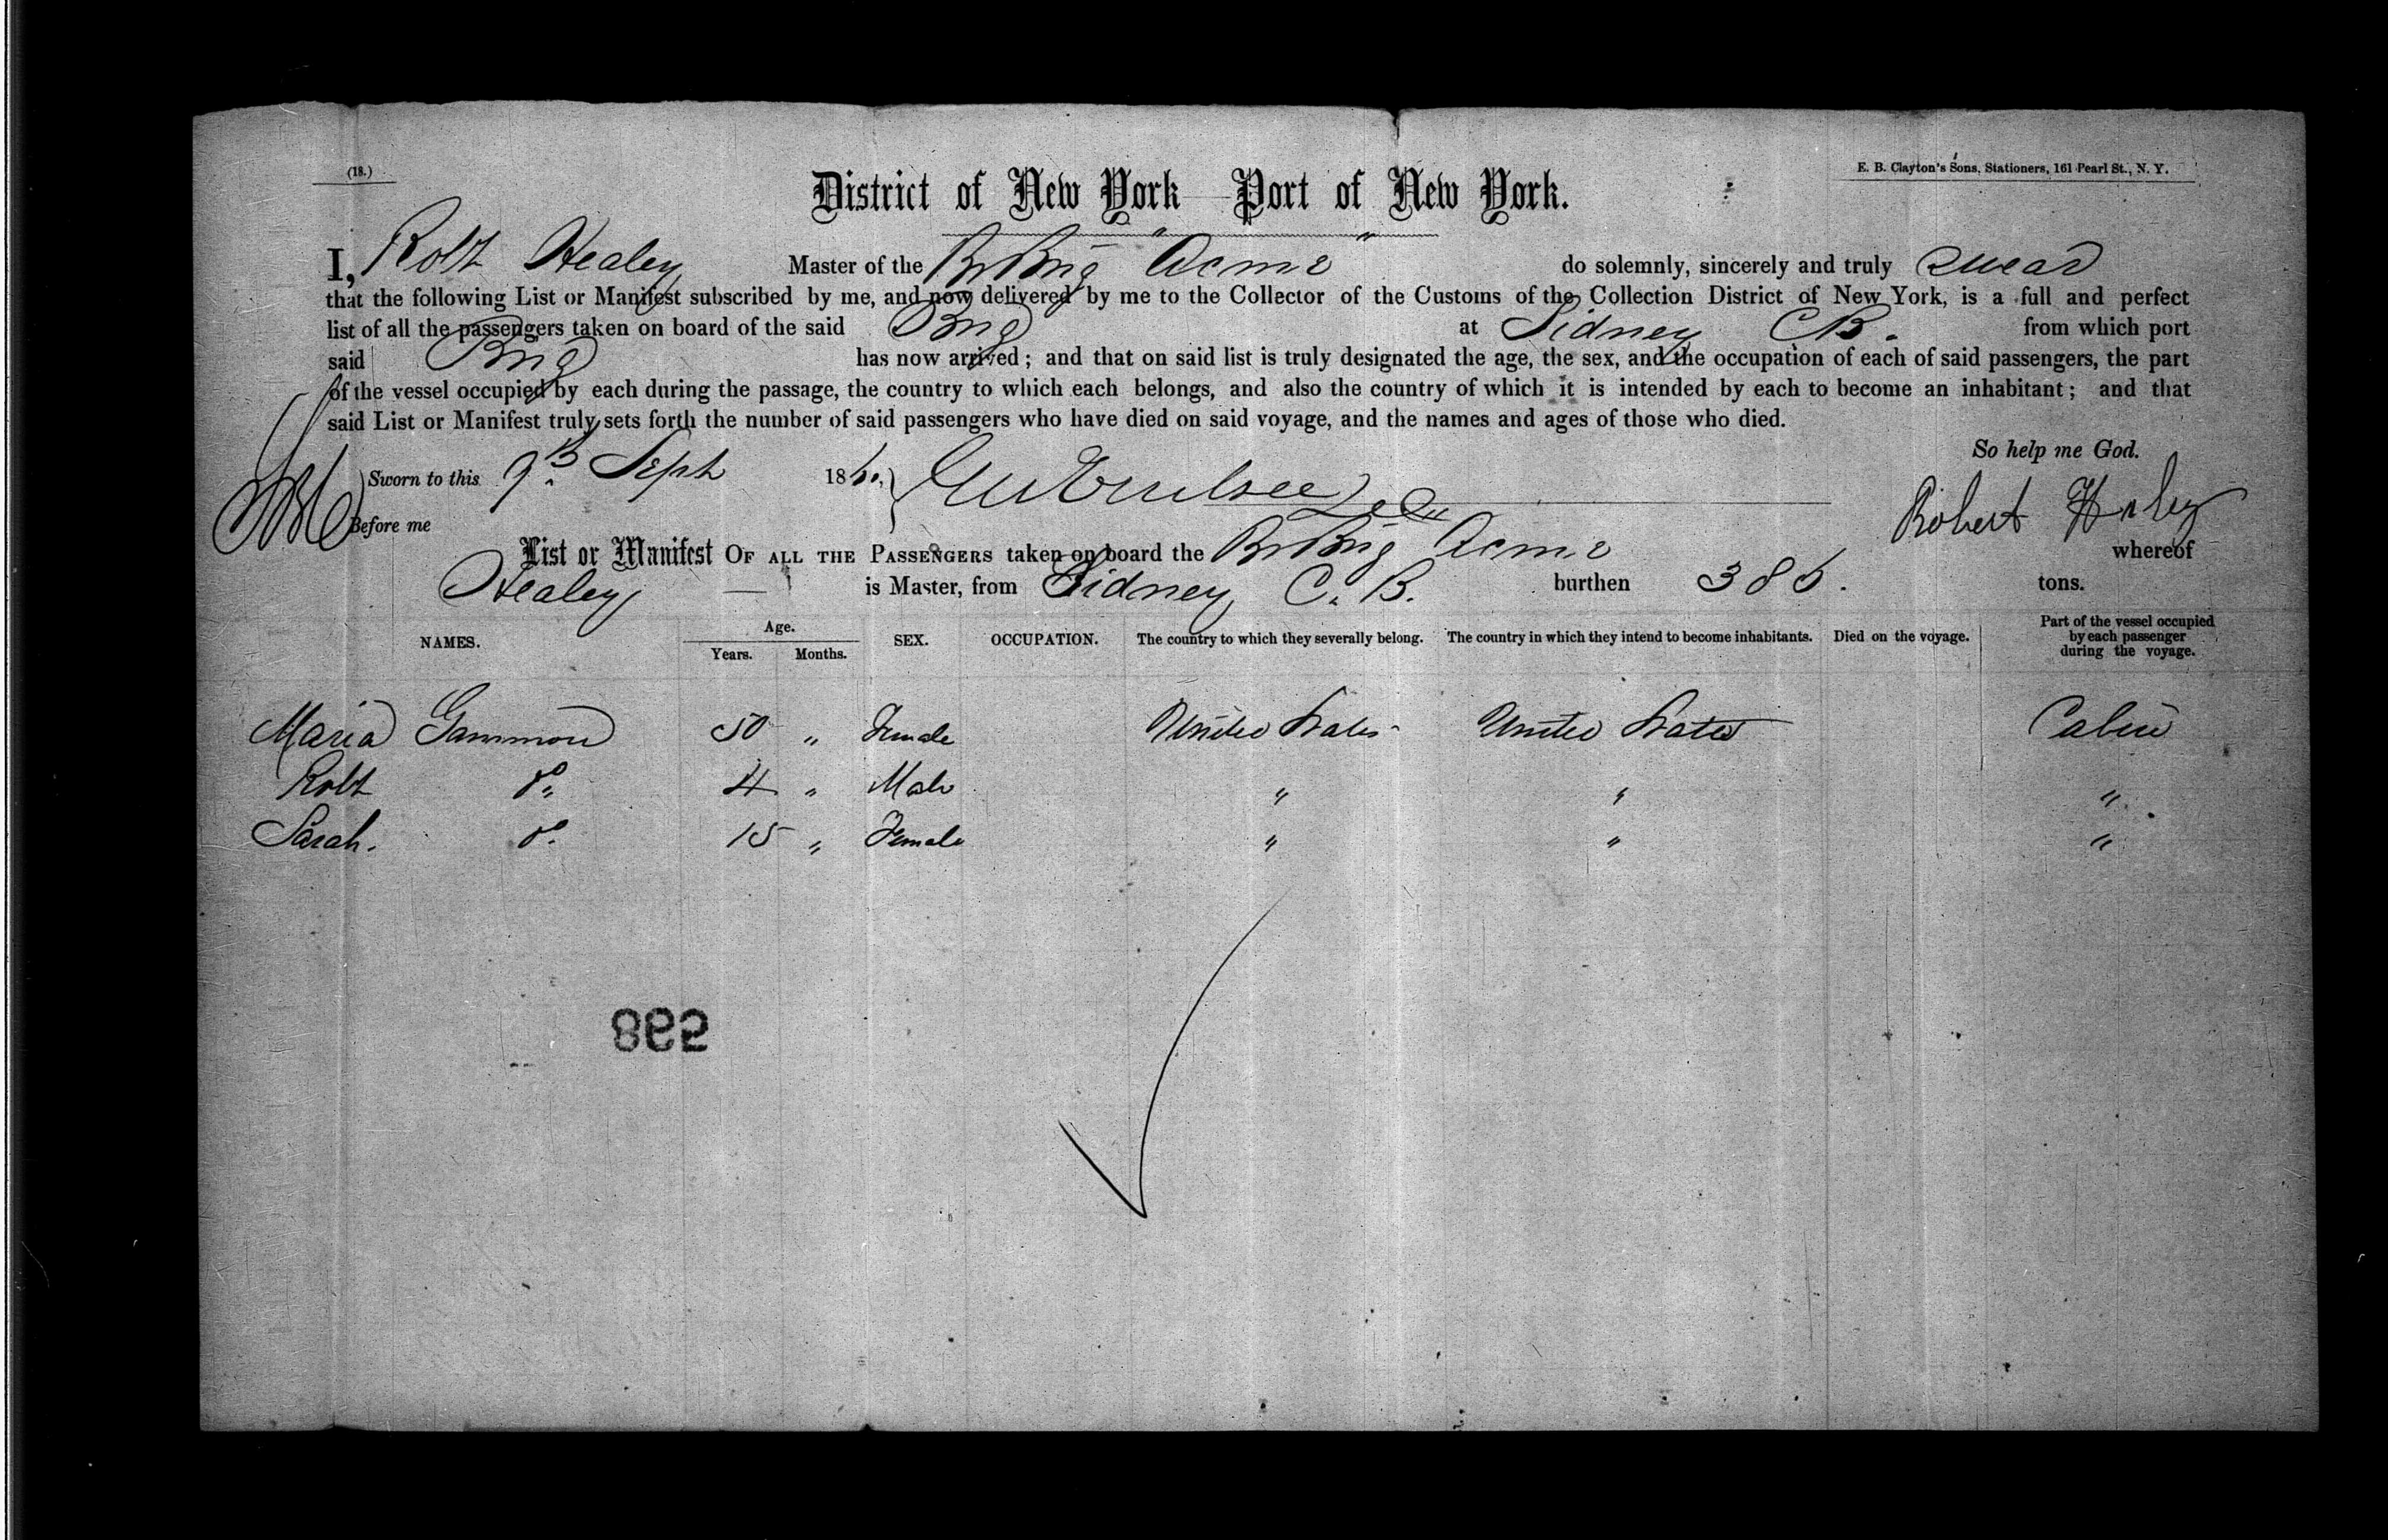 (18.)
E. B. Clayton's Sons, Stationers, 161 Pearl St., N. Y.
District of New York Port of New York.
I, Robt Healey Master of the Br Brig "Acme" do solemnly, sincerely and truly swear
that the following List or Manifest subscribed by me, and now delivered by me to the Collector of the Customs of the Collection District of New York, is a full and perfect
list of all the passengers taken on board of the said Brig at Sidney C.B. from which port
said Brig has now arrived; and that on said list is truly designated the age, the sex, and the occupation of each of said passengers, the part
of the vessel occupied by each during the passage, the country to which each belongs, and also the country of which it is intended by each to become an inhabitant; and that
said List or Manifest truly sets forth the number of said passengers who have died on said voyage, and the names and ages of those who died.
So help me God.
Sworn to this 9th Sept 186
Before me
Robert Healey
List or Manifest OF ALL THE PASSENGERS taken on board the Br Brig Acme whereof
Healey is Master, from Sidney, C. B. burthen 386. tons.
NAMES. Age. Years. Months. SEX. OCCUPATION. The country to which they severally belong. The country in which they intend to become inhabitants. Died on the voyage. Part of the vessel occupied by each passenger during the voyage.
Maria Gammon 50 " Female United States United States Cabin
Robt do 4 " Male " " "
Sarah. do 15 " Female " " "
598